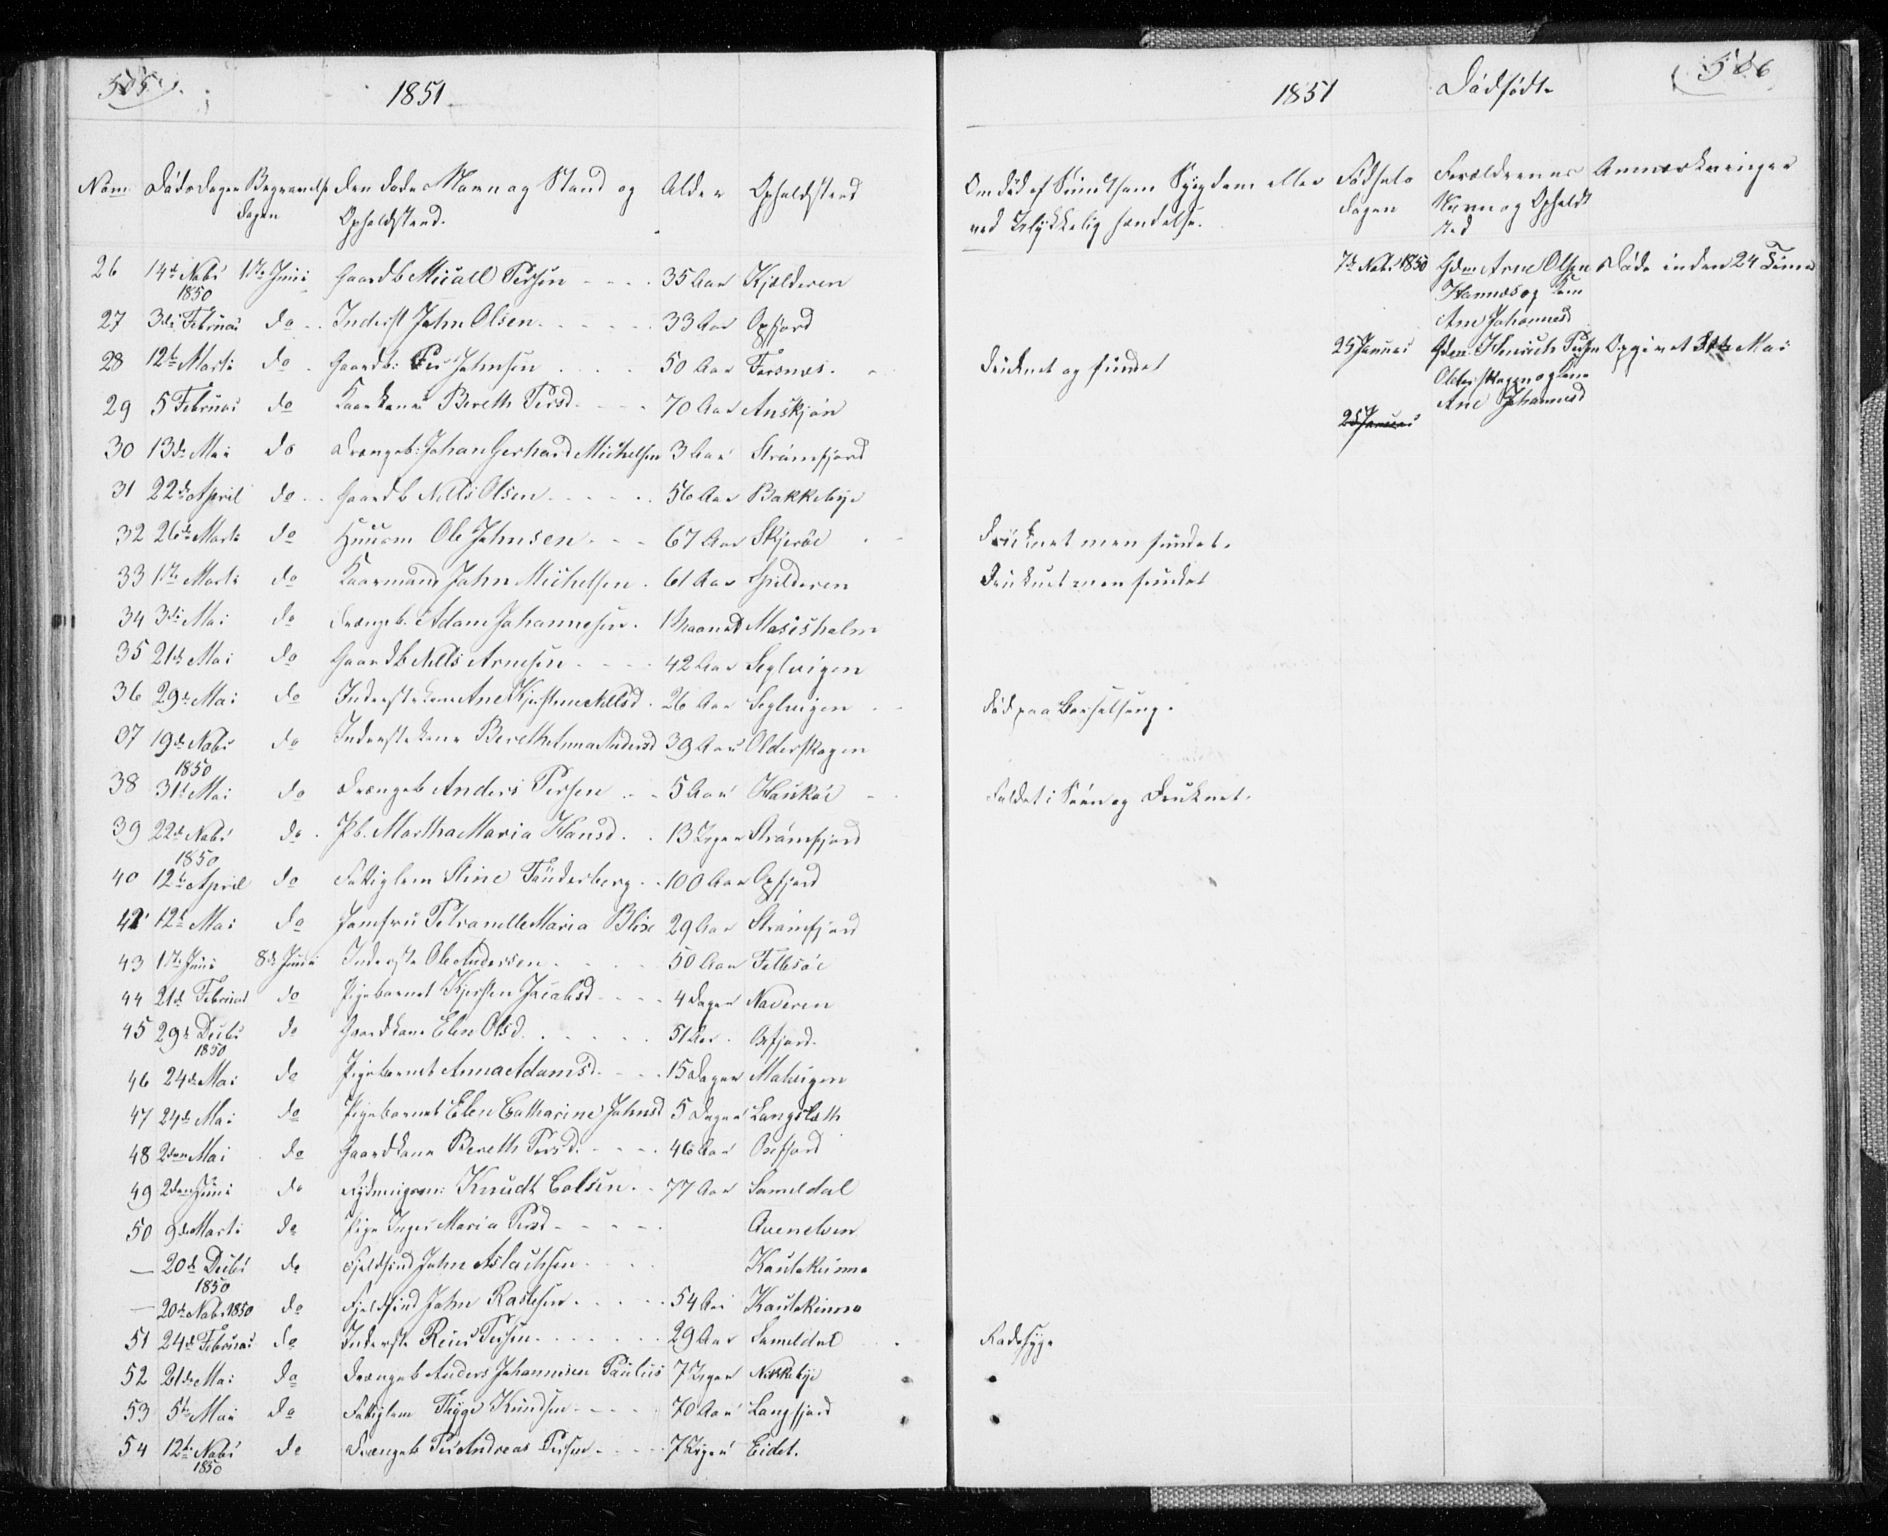 505
1851
Nom Dødsdagen Begravelses dagen Den Dødes Navn og Stand og Opholdsted. Alder Opholdsted
26 14de Novbr 1850 1ste Juni Gaardb Micall Persen 35 Aar Kjelderen
27 3die Februar do Inderst John Olsen 33 Aar Opfjord
28 12te Marts do Gaardb: Per Johnsen 50 Aar
29 5 Februar do Kaarkone Bereth Persd 70 Aar
30 13de Mai do Drængeb: Johan Gerhard Michelsen 3 Aar Strømfjord
31 22de April do Gaardb Nills Olsen 56 Aar Bakkebye
32 26de Marts do Huusm Ole Johnsen 67 Aar Skjerøe
33 1ste Marts do Kaarmand John Michelsen 61 Aar Spilderen
34 3die Mai do Drængeb. Adam Johannesen 1 Maaned Masisholm
35 21de Mai do Gaardb Nills Arnesen 42 Aar Seglvigen
36 29de Mai do Inderstekone Ane Kjerstine Nillsd 26 Aar Seglvigen
37 19de Novbr 1850 do Inderstekone Bereth Anna Andersd 39 Aar Olderskogen
38 31te Mai do Drængeb Anders Persen 5 Aar Haukøe
39 22de Novbr 1850 do Pb. Martha Maria Hansd 13 Uger Strømfjord
40 12te April do Fattiglem Stine Tünderberg 100 Aar Opfjord
42 12te Mai do Jomfru Petranelle Maria Blix 29 Aar Strømfjord
43 1ste Juni 8de Juni Inderste Ole Andersen 50 Aar
44 21de Februar do Pigebarnet Kjersten Jacobsd 4 Dager Naveren
45 29de Decbr 1850 do Gaardkone Elen Olsd 51 Aar Oxfjord
46 24de Mai do Pigebarnet Anna Adamsd 15 Dager Malvigen
47 24de Mai do Pigebarnet Elen Catharine Johnsd 5 Dager Langsleth
48 2den Mai do Gaardkone Bereth Persd 46 Aar Oxfjord
49 2den Juni do Rydningsm: Knudt Colsen 77 Aar Sameldal
50 9de Marts do Pige Inger Maria Persd Qvenelven
— 20de Decbr 1850 do Fjeldfind John Aslachsen Kautokeinno
— 20de Novbr 1850 do Fjeldfind John Rastesen 54 Aar Kautokeinno
51 24de Februar do Inderste Reier Persen 29 Aar Sameldal
52 21de Mai do Drængeb Anders Johannesen Paulus 7 Uger Nikkebye
53 5te Mai do Fattiglem Thyge Knudsen 70 Aar Langfjord
54 12te Novbr 1850 do Drængeb Per Andreas Persen 7 Uger Eidet.
506
1851 Dødfødte
Om død af Smitsom Sygdom eller ved Ulykkelig hændelse. Fødsels dagen Forældrenes Navn og Opholdsted Anmærkninger
7de Novbr 1850 Gdm Arne Olsen Døde inden 24 Timer
Hamnes og Kone
Ane Johannesd
25 Januar Gdm. Henrich Persen Opgivet 31te Mai
Olderskogen og Kone
Ane Johannesd
25 Januar
Druknet og fundet
Druknet men fundet.
Druknet men fundet
Død paa Barselseng.
Faldet i Søen og Druknet.
Radesyge